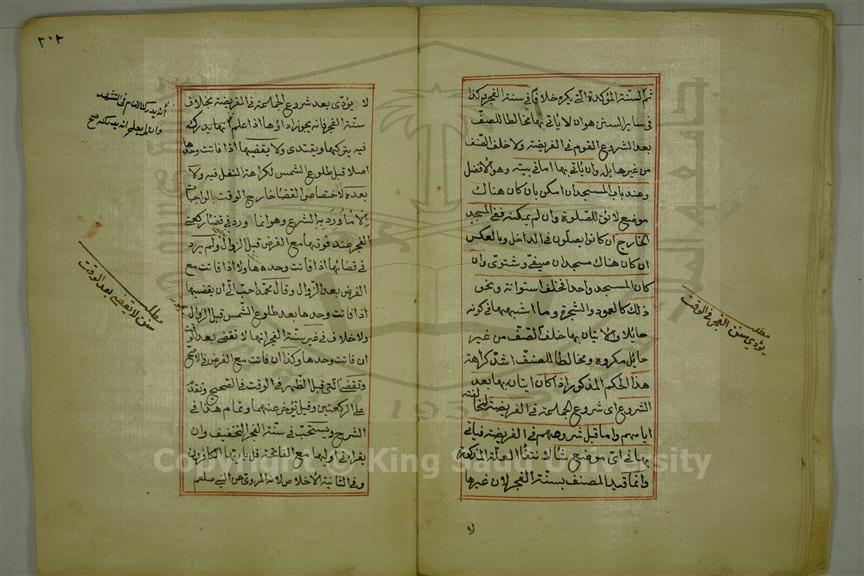 ثم السنة المؤكدة التي يكره خلافها في سنة الفجر وكذا
في سائر السنن هو ان لا يأتي بها مخالطا للصف
بعد الشروع القوم في الفريضة ولا خلف الصف
من غير حايل وان يأتي بها اما في بيته وهو الافضل
وعند باب المسجد ان امكن بان كان هناك
موضع لائق للصلوة وان لم يمكنه ففي المسجد
الخارج ان كانوا يصلون في الداخل وبالعكس
ان كان هناك مسجدان صيفي وشتوي وان
كان المسجد واحدا فخلف اسطوانة ونحو
ذلك كالعود والشجرة وما اشبههما في كونه
حائلا والاتيان بها خلف الصف من غير
حائل مكروه ومخالطا للصف اشد كراهة
هذا الحكم المذكور اذا كان اتيان بها بعد
الشروع اي شروع الجماعة في الفريضة
اياهم واما قبل شروعهم في الفريضة فيأتي
بها في اي موضع شاء لانتفاء العلة المذكورة
وانما قيد المصنف بسنة الفجر لان غيرها
لا
مطلب
يؤدي سنن الفجر في الوقت
٢٠٢
لا يؤدى بعد شروع الجماعة في الفريضة بخلاف
سنة الفجر فانه يجوز اداؤها اذا علم انها يدركه
فيه يتركها ويقتدي ولا يقضيها اذا فاتت وحدها
اصلا قبل طلوع الشمس لكراهة النفل فيه ولا
بعده لاختصاص القضا خارج الوقت بالواجبات
الا ما ورد به الشرع وهو انما ورد في قضا ركعتي
الفجر عند فوتهما مع الفرض قبل الزوال ولم يرد
في قضائها اذا فاتت وحدها ولا اذا فاتت مع
الفرض بعد الزوال وقال محمد احب الي ان يقضيها
اذا فاتت وحدها بعد طلوع الشمس قبل الزوال
ولا خلاف في غير سنة الفجر انها لا تقضى بعد الوقت
ان فاتت وحدها وكذا ان فاتت مع الفرض في الاصح
وتقضى التي قبل الظهر في الوقت في الصحيح وتقدم
على الركعتين وقيل تؤخر عنهما وتمام هذا في
الشرح ويستحب في سنة الفجر التخفيف وان
يقرأ في اوليها مع الفاتحة قل يا ايها الكافرون
وفي الثانية الاخلاص لانه المروي عن النبي صلعم
انه يدرك الامام في التشهد
مطلب
سنن لا تقضى بعد الوقت
Copyright © King Saud University
1957